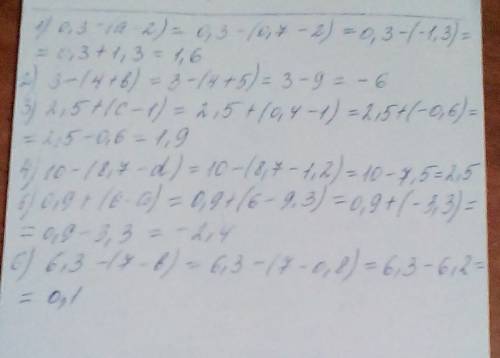 1) 0,3-(a-2)= 0,3-(0,7-2)=0,3-(-1,3)=
= 0,3+1,3=1,6
2) 3-(4+b)=3-(4+5)=3-9=-6
3) 2,5+(c-1)= 2,5+(0,4-1)=2,5+(-0,6)=
=2,5-0,6=1,9
4) 10-(8,7-d)=10-(8,7-1,2)=10-7,5=2,5
5) 0,9+(6-a)=0,9+(6-9,3)=0,9+(-3,3)=
= 0,9-3,3 = -2,4
6) 6,3-(7-b)=6,3-(7-0,8)=6,3-6,2=
= 0,1